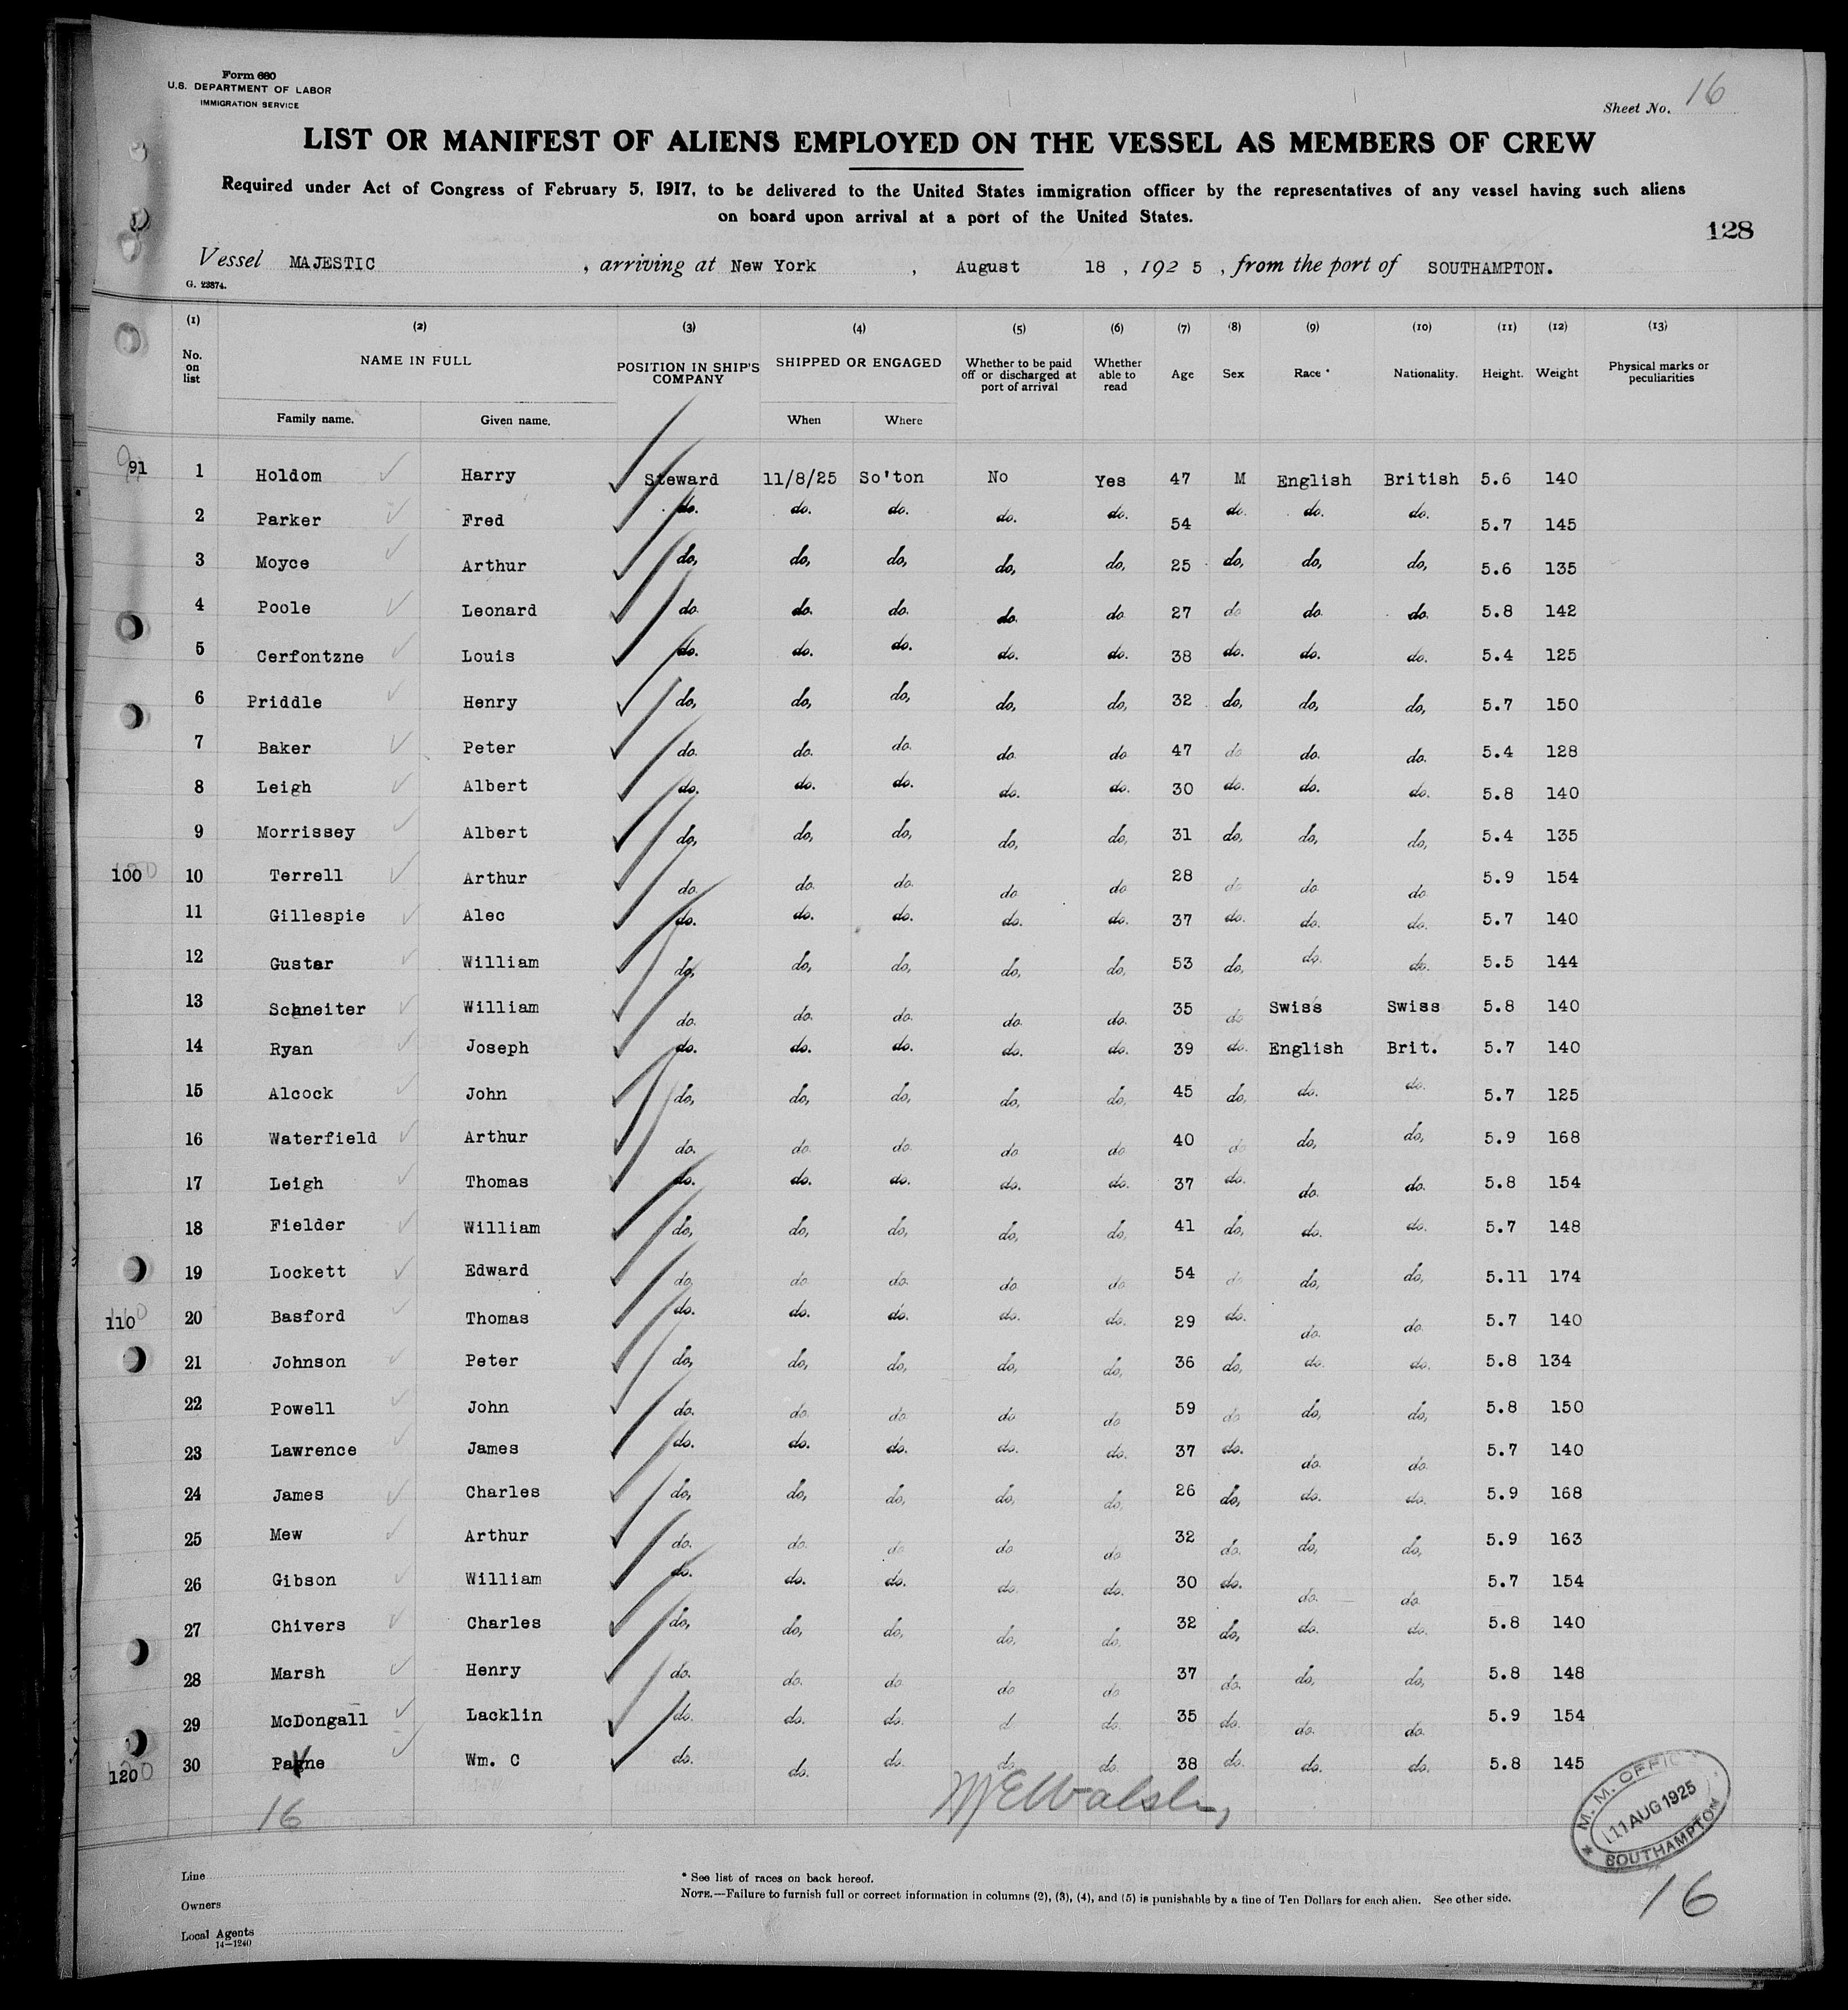 Form 680
U.S. DEPARTMENT OF LABOR
IMMIGRATION SERVICE
Sheet No. 16
LIST OR MANIFEST OF ALIENS EMPLOYED ON THE VESSEL AS MEMBERS OF CREW
Required under Act of Congress of February 5, 1917, to be delivered to the United States immigration officer by the representatives of any vessel having such aliens
on board upon arrival at a port of the United States.
128
Vessel MAJESTIC , arriving at New York , August 18 , 192 5 , from the port of SOUTHAMPTON.
G. 23874.
(1) (2) (3) (4) (5) (6) (7) (8) (9) (10) (11) (12) (13)
No. on list NAME IN FULL POSITION IN SHIP'S COMPANY SHIPPED OR ENGAGED Whether to be paid off or discharged at port of arrival Whether able to read Age Sex Race * Nationality. Height. Weight Physical marks or peculiarities
Family name. Given name. When Where
91 1 Holdom Harry Steward 11/8/25 So'ton No Yes 47 M English British 5.6 140
2 Parker Fred do. do. do. do. do. 54 do. do. do. 5.7 145
3 Moyce Arthur do, do, do, do, do, 25 do, do, do, 5.6 135
4 Poole Leonard do. do. do. do. do 27 do do. do. 5.8 142
5 Cerfontzne Louis do. do. do. do. do. 38 do. do. do. 5.4 125
6 Priddle Henry do, do, do, do, do, 32 do, do, do, 5.7 150
7 Baker Peter do. do. do. do. do 47 do do. do. 5.4 128
8 Leigh Albert do. do. do. do. do. 30 do. do. do. 5.8 140
9 Morrissey Albert do, do, do, do, do, 31 do, do, do, 5.4 135
100 10 Terrell Arthur do. do. do. do do 28 do do do 5.9 154
11 Gillespie Alec do. do. do. do. do. 37 do. do. do. 5.7 140
12 Gustar William do, do, do, do, do, 53 do, do. do. 5.5 144
13 Schneiter William do. do. do. do. do. 35 do Swiss Swiss 5.8 140
14 Ryan Joseph do. do. do. do. do. 39 do. English Brit. 5.7 140
15 Alcock John do, do, do, do, do, 45 do, do. do. 5.7 125
16 Waterfield Arthur do. do. do. do do 40 do do, do, 5.9 168
17 Leigh Thomas do. do. do. do. do. 37 do. do. do. 5.8 154
18 Fielder William do, do, do, do, do, 41 do, do. do. 5.7 148
19 Lockett Edward do. do do. do do 54 do do, do, 5.11 174
110 20 Basford Thomas do. do. do. do. do. 29 do. do. do. 5.7 140
21 Johnson Peter do, do, do, do, do, 36 do, do. do. 5.8 134
22 Powell John do. do. do. do do 59 do do, do, 5.8 150
23 Lawrence James do. do. do. do. do. 37 do. do. do. 5.7 140
24 James Charles do, do, do, do, do, 26 do, do. do. 5.9 168
25 Mew Arthur do. do. do do do 32 do. do, do, 5.9 163
26 Gibson William do. do. do. do. do. 30 do. do. do. 5.7 154
27 Chivers Charles do, do, do, do, do. 32 do, do. do. 5.8 140
28 Marsh Henry do. do. do. do do 37 do. do, do, 5.8 148
29 McDongall Lacklin do. do. do. d do. 35 do. do. do. 5.9 154
120 30 Payne Wm. C do. do. do. do. do. 38 do. do. do. 5.8 145
16
M. M. OFFICE
11 AUG 1925
SOUTHAMPTON
Line
Owners
Local Agents
14—1240
* See list of races on back hereof.
NOTE.—Failure to furnish full or correct information in columns (2), (3), (4), and (5) is punishable by a fine of Ten Dollars for each alien. See other side.
16